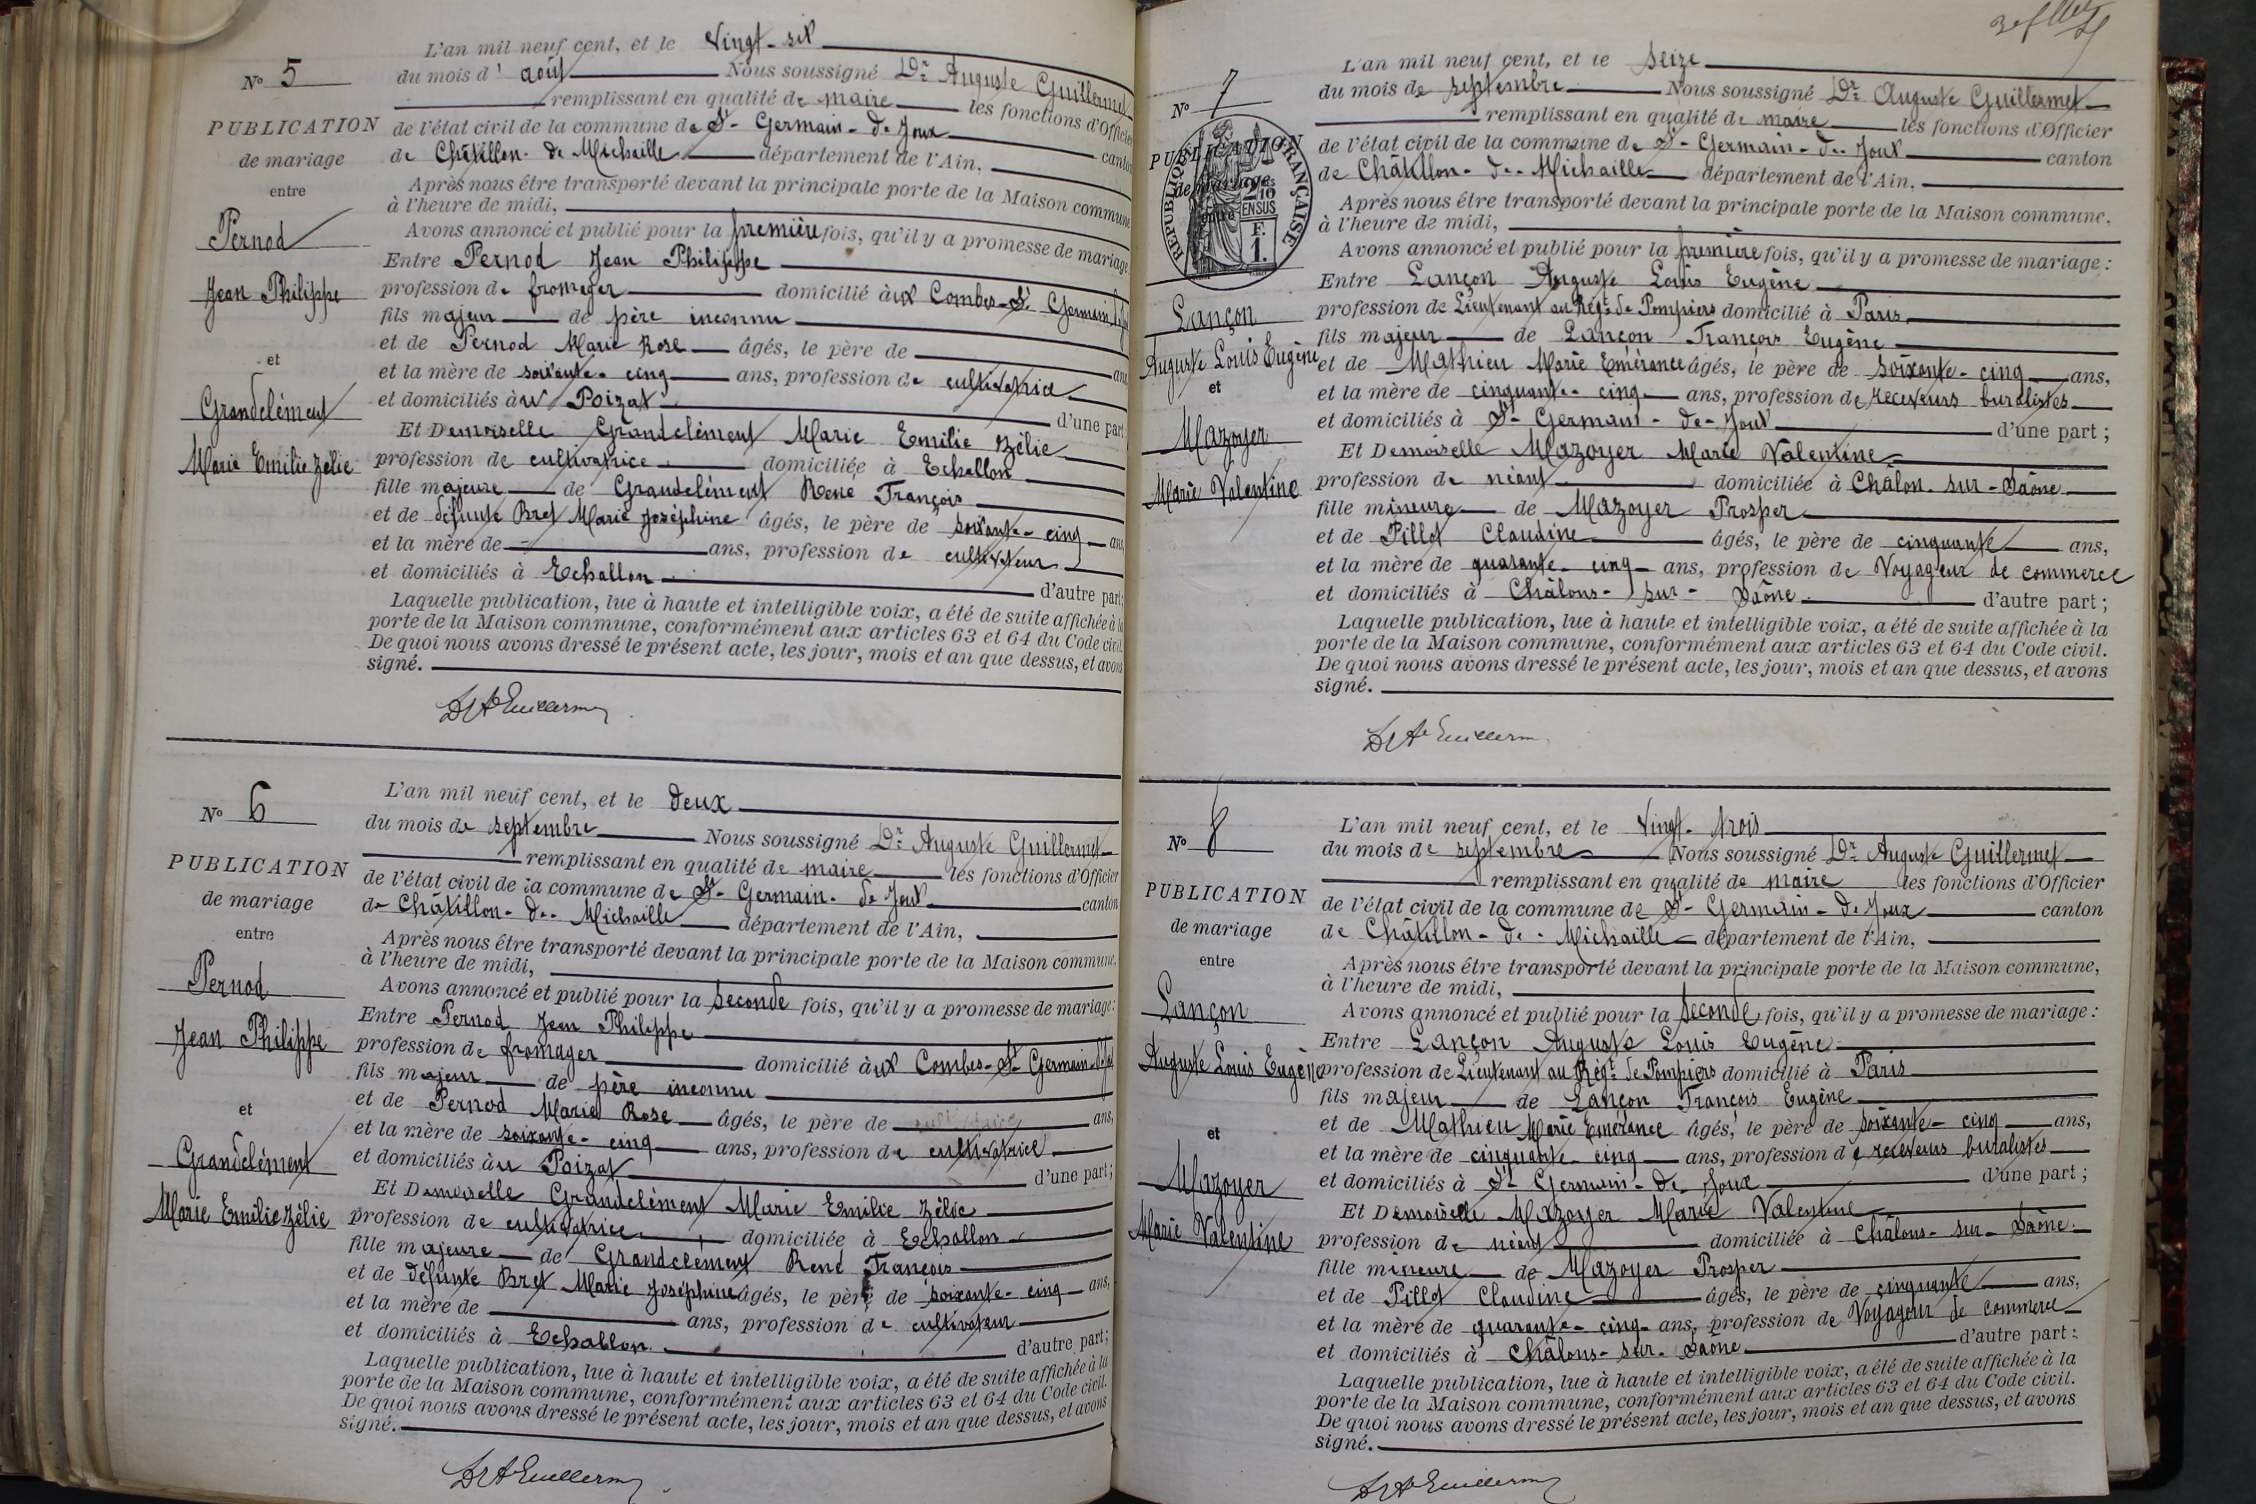 L'an mil neuf cent, et le Vingt-six
N° 5
du mois d' août Nous soussigné Dr Auguste Guillermet
remplissant en qualité de maire les fonctions d'Officier
PUBLICATION
de l'état civil de la commune de St-Germain-de-Joux canton
de mariage
de Châtillon-de-Michaille département de l'Ain,
entre
Après nous être transporté devant la principale porte de la Maison commune
à l'heure de midi,
Pernod
Avons annoncé et publié pour la première fois, qu'il y a promesse de mariage
Entre Pernod Jean Philippe
Jean Philippe
profession de fromager domicilié aux Combes-St Germain
fils majeur de père inconnu
et de Pernod Marie Rose âgés, le père de ans
et
et la mère de soixante-cinq ans, profession de cultivatrice
Grandclément
et domiciliés au Poizat d'une part
Et Demoiselle Grandclément Marie Emilie Zélie
Marie Emilie Zélie
profession de cultivatrice domiciliée à Echallon
fille majeure de Grandclément René François
et de défunte Bret Marie Joséphine âgés, le père de soixante-cinq ans
et la mère de ans, profession de cultivateur
et domiciliés à Echallon d'autre part;
Laquelle publication, lue à haute et intelligible voix, a été de suite affichée à la
porte de la Maison commune, conformément aux articles 63 et 64 du Code civil.
De quoi nous avons dressé le présent acte, les jour, mois et an que dessus, et avons
signé.
Dr Ate Guillermet
L'an mil neuf cent, et le deux
N° 6
du mois de septembre Nous soussigné Dr Auguste Guillermet
remplissant en qualité de maire les fonctions d'Officier
PUBLICATION
de l'état civil de la commune de St-Germain-de-Joux canton
de mariage
de Châtillon-de-Michaille département de l'Ain,
entre
Après nous être transporté devant la principale porte de la Maison commune,
à l'heure de midi,
Pernod
Avons annoncé et publié pour la seconde fois, qu'il y a promesse de mariage:
Entre Pernod Jean Philippe
Jean Philippe
profession de fromager domicilié aux Combes-St Germain
fils majeur de père inconnu
et de Pernod Marie Rose âgés, le père de ans,
et
et la mère de soixante-cinq ans, profession de cultivatrice
Grandclément
et domiciliés au Poizat d'une part;
Et Demoiselle Grandclément Marie Emilie Zélie
Marie Emilie Zélie
profession de cultivatrice domiciliée à Echallon
fille majeure de Grandclément René François
et de défunte Bret Marie Joséphine âgés, le père de soixante-cinq ans,
et la mère de ans, profession de cultivateur
et domiciliés à Echallon d'autre part;
Laquelle publication, lue à haute et intelligible voix, a été de suite affichée à la
porte de la Maison commune, conformément aux articles 63 et 64 du Code civil.
De quoi nous avons dressé le présent acte, les jour, mois et an que dessus, et avons
signé.
Dr Ate Guillermet
L'an mil neuf cent, et le seize
N° 7
du mois de septembre Nous soussigné Dr Auguste Guillermet
remplissant en qualité de maire les fonctions d'Officier
PUBLICATION
de l'état civil de la commune de St-Germain-de-Joux canton
de mariage
de Châtillon-de-Michaille département de l'Ain,
entre
RÉPUBLIQUE FRANÇAISE
2/10 ENSUS
F. 1.
Après nous être transporté devant la principale porte de la Maison commune,
à l'heure de midi,
Avons annoncé et publié pour la première fois, qu'il y a promesse de mariage:
Entre Lançon Auguste Louis Eugène
Lançon
profession de Lieutenant au Régt de Pompiers domicilié à Paris
fils majeur de Lançon François Eugène
Auguste Louis Eugène
et de Mathieu Marie Emérance âgés, le père de soixante-cinq ans,
et
et la mère de cinquante-cinq ans, profession de receveurs buralistes
Mazoyer
et domiciliés à St-Germain-de-Joux d'une part;
Et Demoiselle Mazoyer Marie Valentine
Marie Valentine
profession de néant domiciliée à Châlon-sur-Saône
fille mineure de Mazoyer Prosper
et de Pillot Claudine âgés, le père de cinquante ans,
et la mère de quarante-cinq ans, profession de Voyageur de commerce
et domiciliés à Châlons-sur-Saône d'autre part;
Laquelle publication, lue à haute et intelligible voix, a été de suite affichée à la
porte de la Maison commune, conformément aux articles 63 et 64 du Code civil.
De quoi nous avons dressé le présent acte, les jour, mois et an que dessus, et avons
signé.
Dr Ate Guillermet
L'an mil neuf cent, et le Vingt-trois
N° 8
du mois de septembre Nous soussigné Dr Auguste Guillermet
remplissant en qualité de maire les fonctions d'Officier
PUBLICATION
de l'état civil de la commune de St-Germain-de-Joux canton
de mariage
de Châtillon-de-Michaille département de l'Ain,
entre
Après nous être transporté devant la principale porte de la Maison commune,
à l'heure de midi,
Lançon
Avons annoncé et publié pour la seconde fois, qu'il y a promesse de mariage:
Entre Lançon Auguste Louis Eugène
Auguste Louis Eugène
profession de Lieutenant au Régt de Pompiers domicilié à Paris
fils majeur de Lançon François Eugène
et
et de Mathieu Marie Emérance âgés, le père de soixante-cinq ans,
et la mère de cinquante-cinq ans, profession de receveurs buralistes
Mazoyer
et domiciliés à St Germain-de-Joux d'une part;
Et Demoiselle Mazoyer Marie Valentine
Marie Valentine
profession de néant domiciliée à Châlons-sur-Saône
fille mineure de Mazoyer Prosper
et de Pillot Claudine âgés, le père de cinquante ans,
et la mère de quarante-cinq ans, profession de Voyageur de commerce
et domiciliés à Châlons-sur-Saône d'autre part:
Laquelle publication, lue à haute et intelligible voix, a été de suite affichée à la
porte de la Maison commune, conformément aux articles 63 et 64 du Code civil.
De quoi nous avons dressé le présent acte, les jour, mois et an que dessus, et avons
signé.
Dr Ate Guillermet